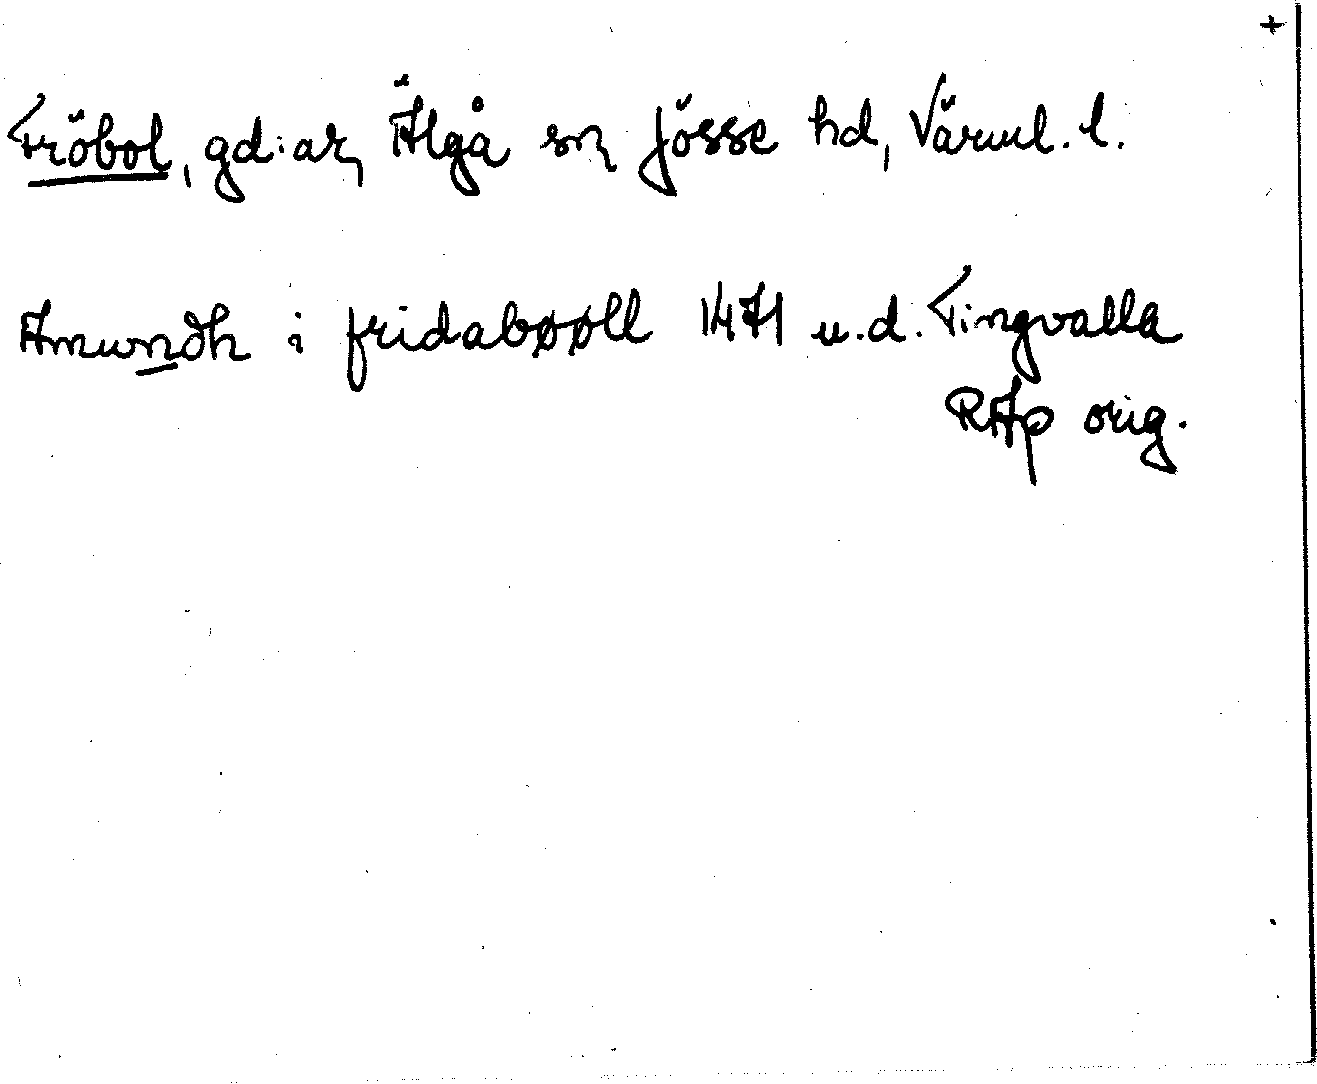 +
Fröbol, gd:ar, Älgå sn Jösse hd, Värml. l.
Amundh i fridabøøll 1471 u.d. Tingvalla
RAp orig.